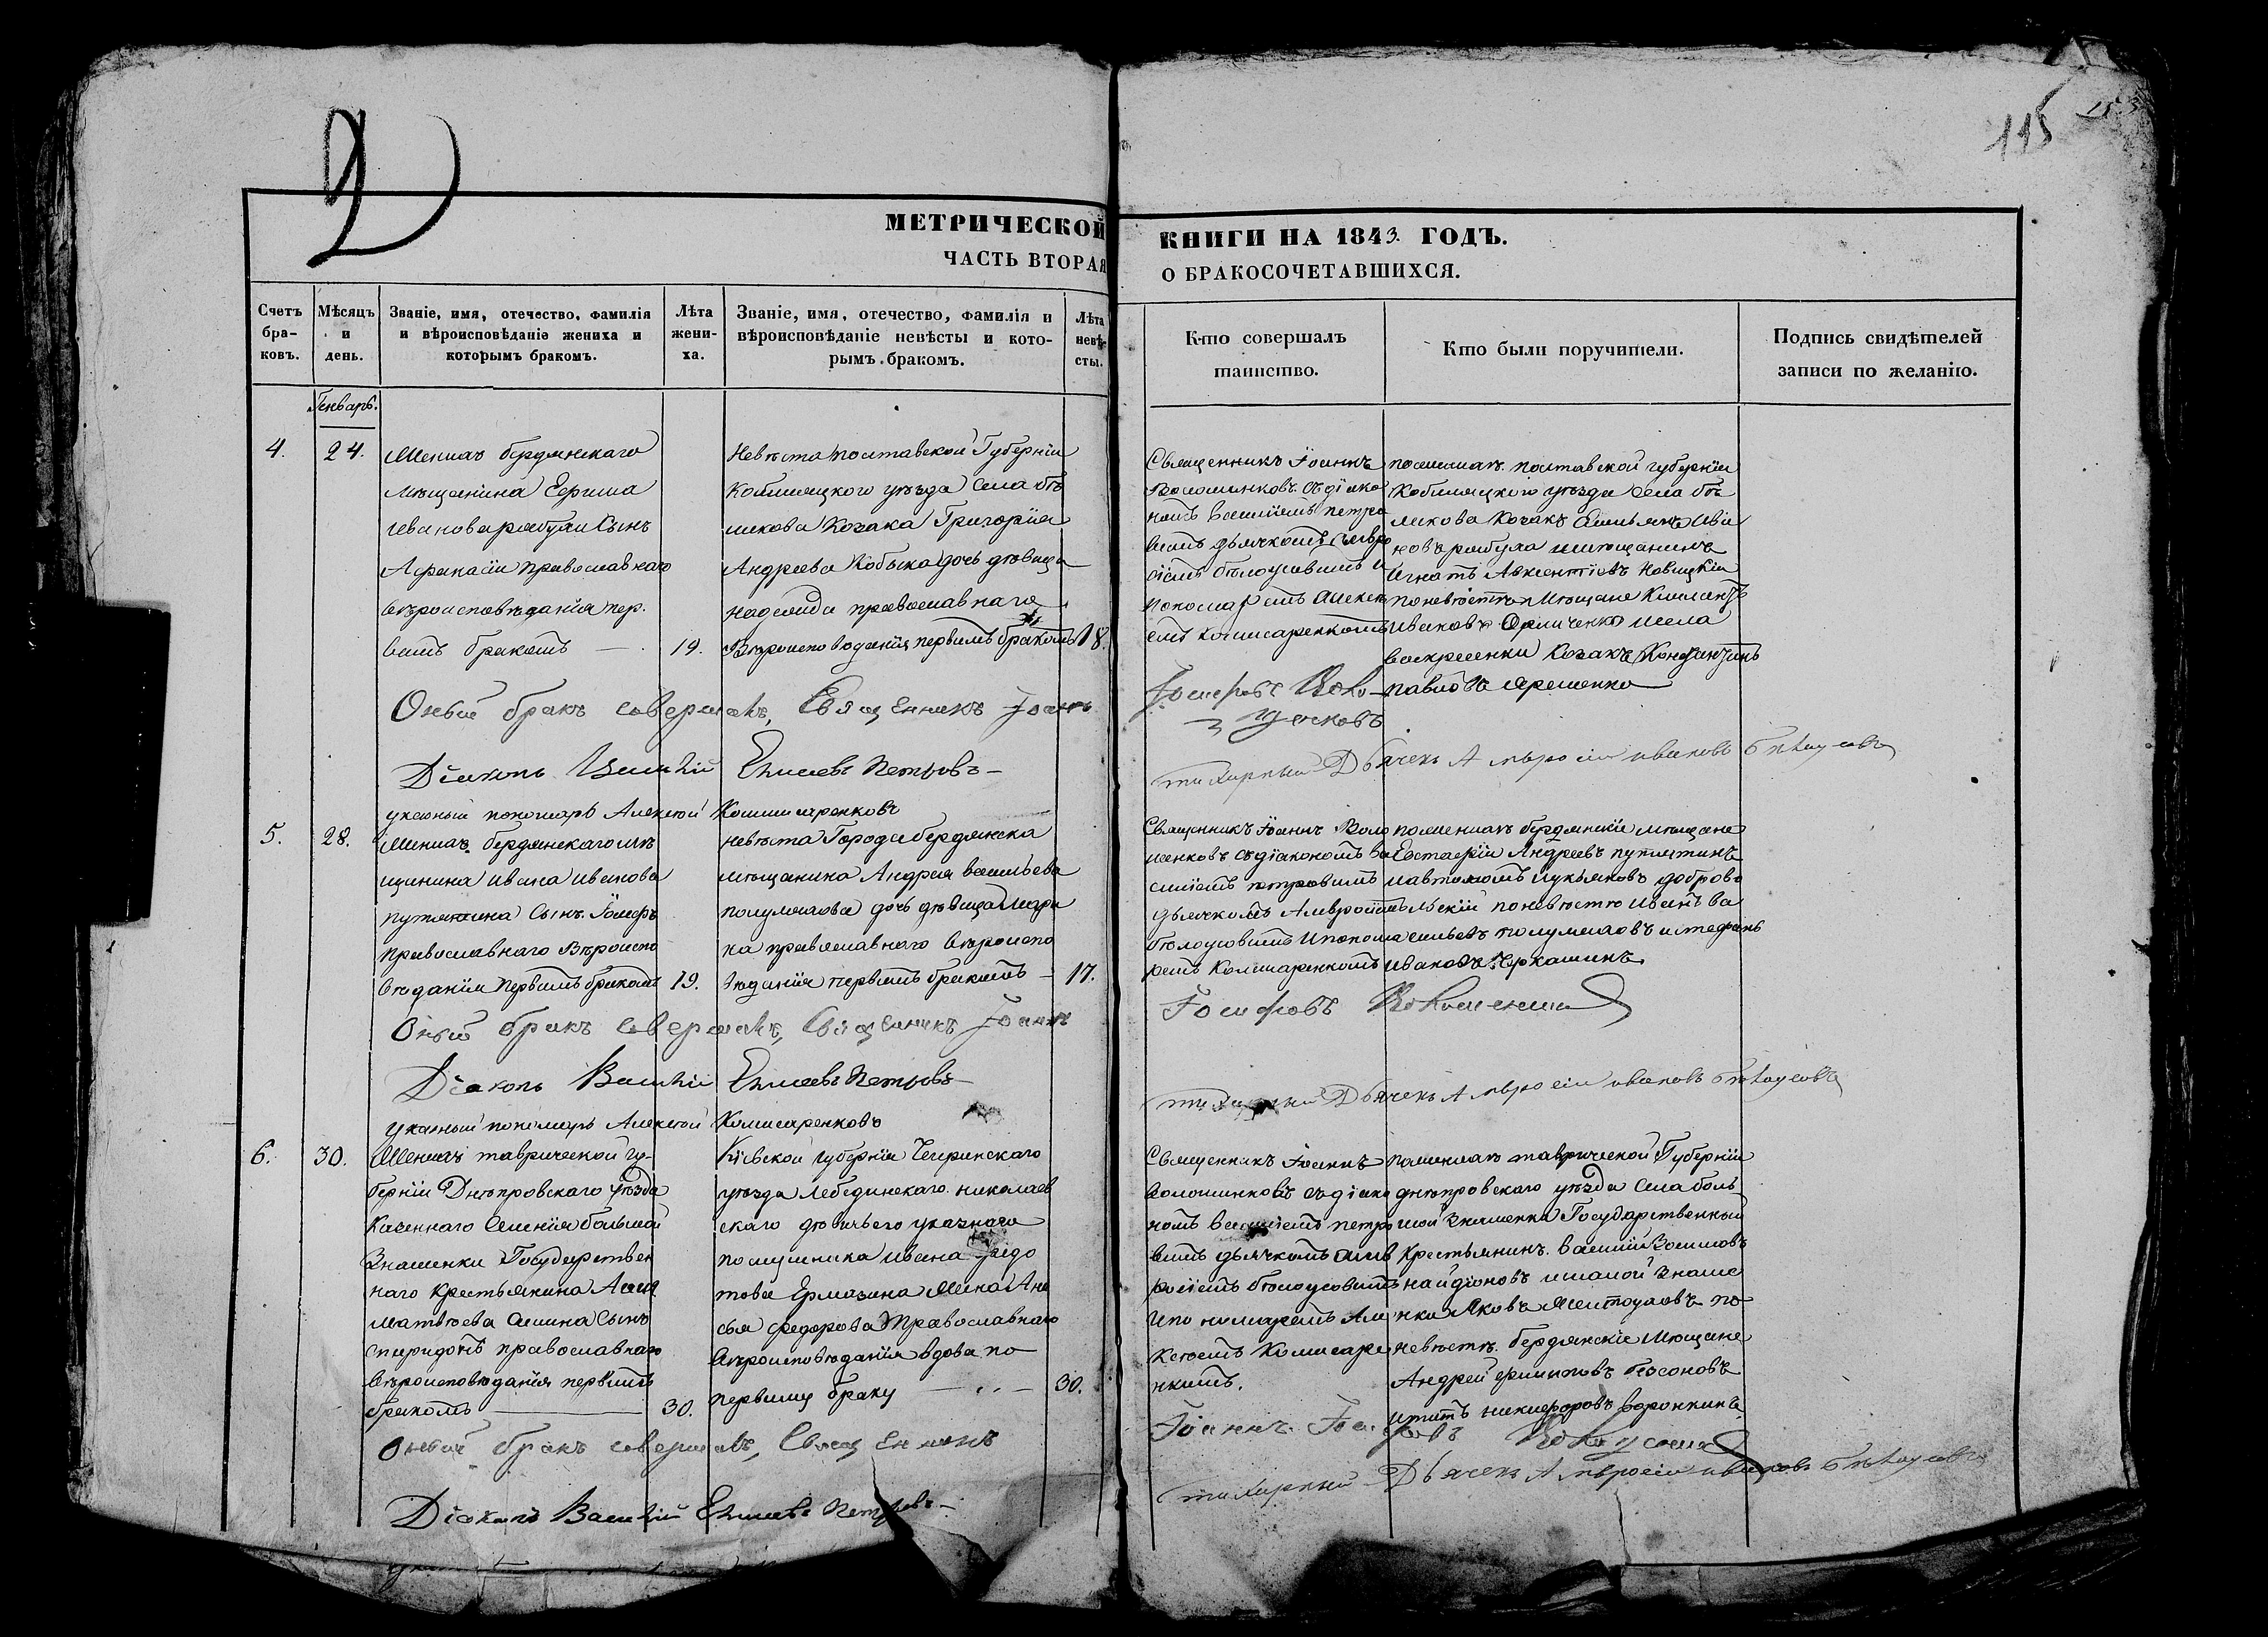 115
153
МЕТРИЧЕСКОЙ КНИГИ НА 1843. ГОДЪ.
ЧАСТЬ ВТОРАЯ О БРАКОСОЧЕТАВШИХСЯ.
Счетъ бра-ковъ.
Мѣсяцъ и день.
Званіе, имя, отечество, фамилія и вѣроисповѣданіе жениха и которымъ бракомъ.
Лѣта жени-ха.
Званіе, имя, отечество, фамилія и вѣроисповѣданіе невѣсты и кото-рымъ бракомъ.
Лѣта невѣ-сты.
Кто совершалъ таинство.
Кто были поручители.
Подпись свидѣтелей записи по желанію.
Генварь.
4.
24.
Женихъ бердянскаго
мѣщанина Ефима
Иванова рябухи Сынъ
Афанасій православнаго
вѣроисповѣданія пер.
вымъ бракомъ
19.
Невѣста полтавской Губерніи
Кобыляцкого уѣзда Села бѣ
ликова Козака Григорія
Андреева Кобыка дочь дѣвица
православнаго
Вѣроисповѣданія первымъ бракомъ
18.
Священникъ Іоаннъ
съ діако
номъ василіемъ петро
вымъ дьячкомъ амвро
сіемъ бѣлоусовымъ и
пономаремъ алексѣ
емъ комисаренкомъ
поженихѣ полтавской губерніи
Кобыляцкого уѣзда села бѣ
ликова Козакъ Ива
новъ рябуха и мѣщанинъ
Игнатъ Авксентіевъ Новицкій
поневѣстѣ Мѣщане
Ивановъ села
воскресенки Козакъ Константинъ
павловъ яременко
Оный бракъ совершалъ, Священникъ Іоаннъ Іосифовъ
Діаконъ Василій Елисеевъ Петровъ
Дьячекъ Амвросій ивановъ бѣлоусовъ
указный пономарь Алексѣй Коммисаренковъ
5.
28.
Женихъ бердянскаго мѣ
щанина Ивана Иванова
путятина Сынъ Іосифъ
православнаго Вѣроиспо
вѣданія первымъ бракомъ
19.
невѣста Города бердянска
мѣщанина Андрея васильева
дочь дѣвица Мари
на православнаго вѣроиспо
вѣданія первымъ бракомъ
17.
Священникъ Іоаннъ Воло
шенковъ съ діакономъ ва
силіемъ петровымъ
дьячкомъ Амвросіемъ
бѣлоусовымъ и понома
ремъ Комисаренкомъ
поженихѣ бердянскіе мѣщане
Евстафій Андреевъ путятинъ
лукьяновъ доброво
льскій поневѣстѣ Иванъ ва
сильевъ и стефанъ
Ивановъ Черкашинъ
Оный бракъ совершалъ, Священикъ Іоаннъ Іосифовъ
Діаконъ Василій Елисеевъ Петровъ
Дьячекъ Амвросій ивановъ бѣлоусовъ
указный пономарь Алексѣй Комисаренковъ
6.
30.
Женихъ таврической гу-
берніи Днѣпровскаго уѣзда
Казеннаго Селенія большой
Знаменки Государствен
наго Крестьянина
Матвѣева Сынъ
спиридонъ православнаго
вѣроисповѣданія первымъ
бракомъ
30.
Кіевской губерніи Чегринскаго
уѣзда Лебединскаго николаев
скаго дѣвичьего указнаго
послушника ивана Ѳедо
това жена Ана
православнаго
вѣроисповѣданія вдова по
первому браку
30.
Священникъ Іоаннъ
Волошенковъ съ діако
номъ василіемъ петро
вымъ дьячкомъ амв
росіемъ бѣлоусовымъ
и пономаремъ Але
ксѣемъ Комисаре
нкомъ.
поженихѣ таврической Губерніи
днѣпровскаго уѣзда Села боль
шой Знаменки Государственный
Крестьянинъ василій
найдіоновъ и малой Знаме
нки Яковъ по
невѣстѣ бердянскіе Мѣщане
Андрей филиповъ бесоновъ
никифоровъ воронкинъ
Оный бракъ совершалъ, Священикъ Іоаннъ Іосифовъ
Діаконъ Василій Елисеевъ Петровъ
Дьячекъ Амвросій ивановъ бѣлоусовъ